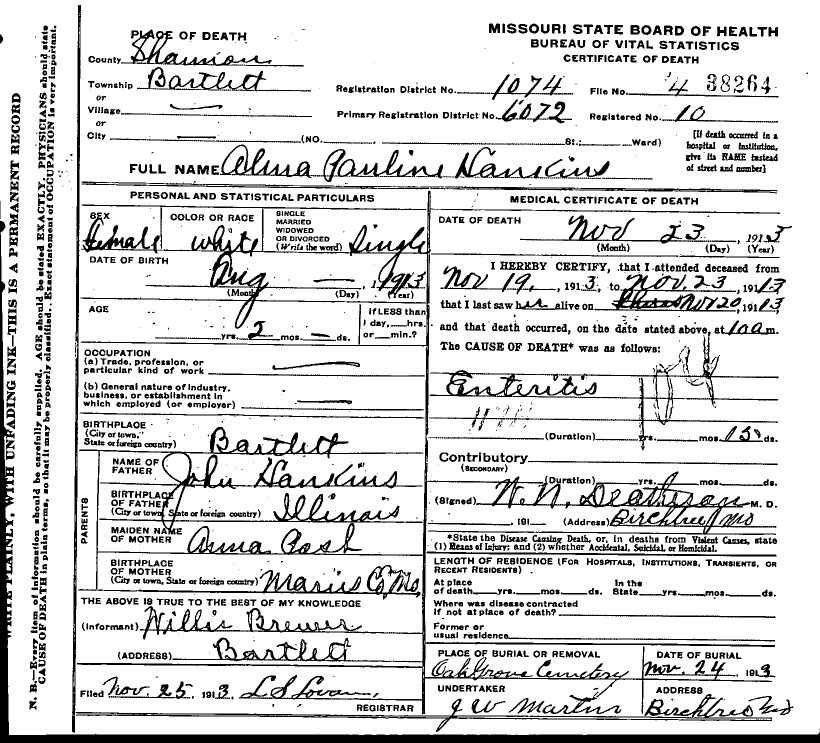 MISSOURI STATE BOARD OF HEALTH
BUREAU OF VITAL STATISTICS
CERTIFICATE OF DEATH
PLACE OF DEATH
County Shannon
Township Bartlett
or
Village
or
City (NO. St.; Ward)
Registration District No. 1074 File No. 4 38264
Primary Registration District No. 6072 Registered No. 10
[If death occurred in a hospital or institution, give its NAME instead of street and number]
FULL NAME Alma Pauline Hankins
PERSONAL AND STATISTICAL PARTICULARS
SEX Female
COLOR OR RACE white
SINGLE MARRIED WIDOWED OR DIVORCED (Write the word) Single
DATE OF BIRTH Aug — 1913
(Month) (Day) (Year)
AGE
yrs. 2 mos. — ds.
If LESS than 1 day, hrs. or min.?
OCCUPATION
(a) Trade, profession, or particular kind of work
(b) General nature of industry, business, or establishment in which employed (or employer)
BIRTHPLACE
(City or town, State or foreign country) Bartlett
PARENTS
NAME OF FATHER John Hankins
BIRTHPLACE OF FATHER
(City or town, State or foreign country) Illinois
MAIDEN NAME OF MOTHER Anna
BIRTHPLACE OF MOTHER
(City or town, State or foreign country) Maries Co, Mo.
THE ABOVE IS TRUE TO THE BEST OF MY KNOWLEDGE
(Informant) Willis Brewer
(ADDRESS) Bartlett
Filed Nov. 25, 1913, L S
REGISTRAR
MEDICAL CERTIFICATE OF DEATH
DATE OF DEATH Nov 23, 1913
(Month) (Day) (Year)
I HEREBY CERTIFY, that I attended deceased from
Nov 19, 1913, to Nov. 23, 1913
that I last saw her alive on Nov 20, 1913
and that death occurred, on the date stated above, at 10 a m.
The CAUSE OF DEATH* was as follows:
Enteritis
104
(Duration) yrs. mos. ds.
Contributory
(SECONDARY)
(Duration) yrs. mos. ds.
(Signed) W. N. M. D.
, 191 (Address) Birchtree Mo
*State the Disease Causing Death, or, in deaths from Violent Causes, state
(1) Means of Injury; and (2) whether Accidental, Suicidal, or Homicidal.
LENGTH OF RESIDENCE (For Hospitals, Institutions, Transients, or Recent Residents)
At place of death yrs. mos. ds. In the State yrs. mos. ds.
Where was disease contracted
If not at place of death?
Former or
usual residence
PLACE OF BURIAL OR REMOVAL Oak Grove Cemetery
DATE OF BURIAL Nov. 24 1913
UNDERTAKER J W Martin
ADDRESS Birchtree Mo
WRITE PLAINLY, WITH UNFADING INK—THIS IS A PERMANENT RECORD
N. B.—Every item of information should be carefully supplied. AGE should be stated EXACTLY. PHYSICIANS should state
CAUSE OF DEATH in plain terms, so that it may be properly classified. Exact statement of OCCUPATION is very important.